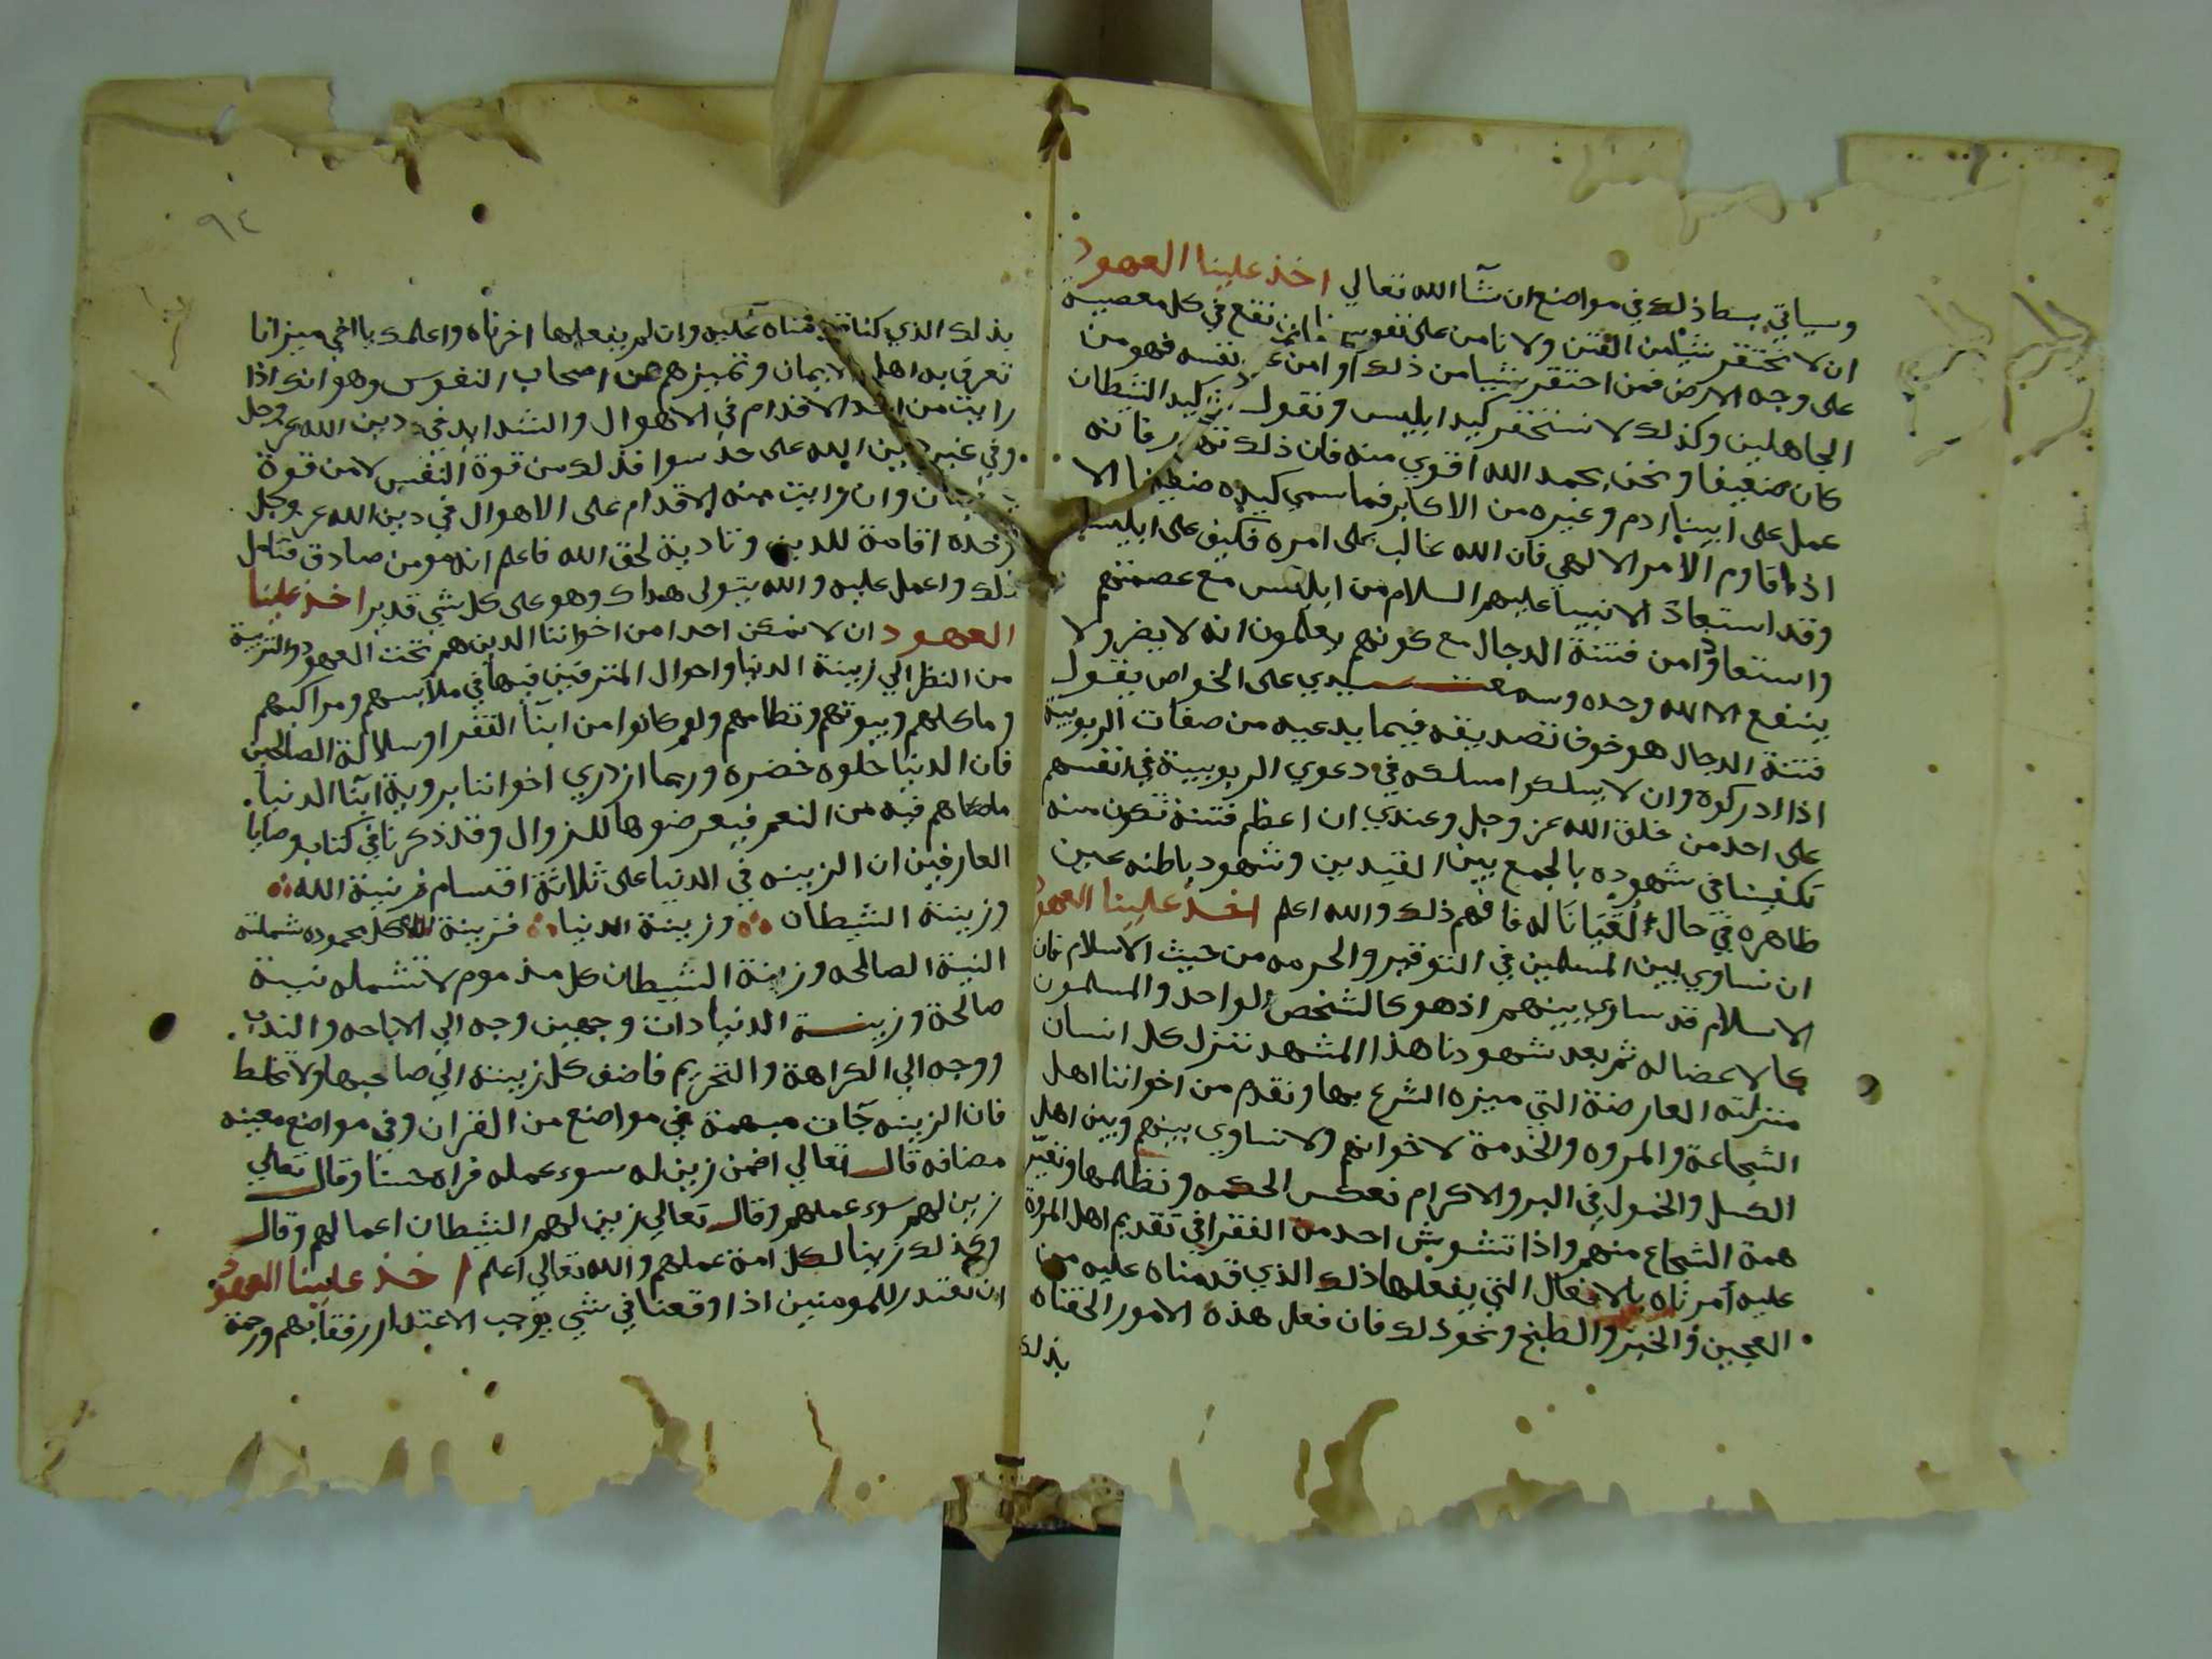 وسياتي بسط ذلك في مواضع ان شآ الله تعالي اخذ علينا العهود
ان لا نحتقر شيا من الفتن ولا نامن على نفوسنا ان نقع في كل معصية
على وجه الارض فمن احتقر شيا من ذلك او امن نفسه فهو من
الجاهلين وكذلك لا نستحقر كيد ابليس ونقول كيد الشيطان
كان ضعيفا ونحن بحمد الله اقوي منه فان ذلك فانه
عمل على ابينا ادم وغيره من الاكابر فما سمي كيده ضعيفا الا
اذا قاوم الامر الالهي فان الله غالب على امره فكيف على ابليس
وقد استعاذ الانبيا عليهم السلام من ابليس مع عصمتهم
واستعاذوا من فتنة الدجال مع كونهم يعلمون انه لا يضر ولا
ينفع الا الله وحده وسمعت سيدي على الخواص يقول
فتنة الدجال هو خوف تصديقه فيما يدعيه من صفات الربوبية
اذا ادركوه وان لا يسلكوا مسلكه في دعوي الربوبية في انفسهم
على احد من خلق الله عز وجل وعندي ان اعظم فتنة تكون منه
تكفينا في شهوده بالجمع بين القيدين وشهود باطنه عين
ظاهره في حال لقيانا له فافهم ذلك والله اعلم اخذ علينا العهود
ان نساوي بين المسلمين في التوقير والحرمه من حيث الاسلام فان
الاسلام قد ساوي بينهم اذ هو كالشخص الواحد والمسلمون
كالاعضا له ثم بعد شهودنا هذا المشهد ننزل كل انسان
منزلته العارضة التي ميزه الشرع بها ونقدم من اخواننا اهل
الشجاعة والمروه والخدمة لاخوانهم ولا نساوي بينهم وبين اهل
الكسل والخمول في البر والاكرام نعكس الحكمه ونظلمها ونغير
همة الشجاع منهم واذا تشوش احد من الفقرا في تقديم اهل المروة
عليه امرناه بالافعال التي يفعلها ذلك الذي قدمناه عليه من
العجين والخبز والطبخ ونحو ذلك فان فعل هذه الامور الحقناه
بذلك
٩٤
بذلك الذي كنا قدمناه عليه وان لم يفعلها اخرناه واعلمك يا اخي ميزانا
تعرف به اهل الايمان وتميزهم عن اصحاب النفوس وهو انك اذا
رايت من احد الاقدام في الاهوال والشدايد في دين الله عز وجل
وفي غير دين الله على حد سوا فذلك من قوة النفس لا من قوة
وان رايت منه الاقدام على الاهوال في دين الله عز وجل
وحده اقامة للدين وتادية لحق الله فاعلم انه مومن صادق فتامل
ذلك واعمل عليه والله يتولى هداك وهو على كل شي قدير اخذ علينا
العهود ان لا نمكن احدا من اخواننا الذين هم تحت العهود والتربية
من النظر الي زينة الدنيا واحوال المترفين فيها في ملابسهم ومراكبهم
وماكلهم وبيوتهم ونظامهم ولو كانوا من ابنآ الفقرا وسلالة الصالحين
فان الدنيا حلوه خضره وربما ازدري اخواننا بروية ابنآ الدنيا
ما هم فيه من النعم فيعرضوها للزوال وقد ذكرنا في كتاب وصايا
العارفين ان الزينه في الدنيا على ثلاثة اقسام زينة الله
وزينة الشيطان وزينة الدنيا فزينة الله كل محموده شملته
النية الصالحه وزينة الشيطان كل مذموم لا تشمله نية
صالحة وزينة الدنيا ذات وجهين وجه الي الاباحه والندب
ووجه الي الكراهة والتحريم فاضف كل زينة الي صاحبها ولا تخلط
فان الزينه جآت مبهمة في مواضع من القران وفي مواضع معينه
مضافه قال تعالي افمن زين له سوء عمله فراه حسنا وقال تعالي
زين لهم سوء عملهم وقال تعالي زين لهم الشيطان اعمالهم وقال
وكذلك زينا لكل امة عملهم والله تعالي اعلم اخذ علينا العهود
ان نعتذر للمومنين اذا وقعنا في شي يوجب الاعتذار رفقا بهم ورحمة